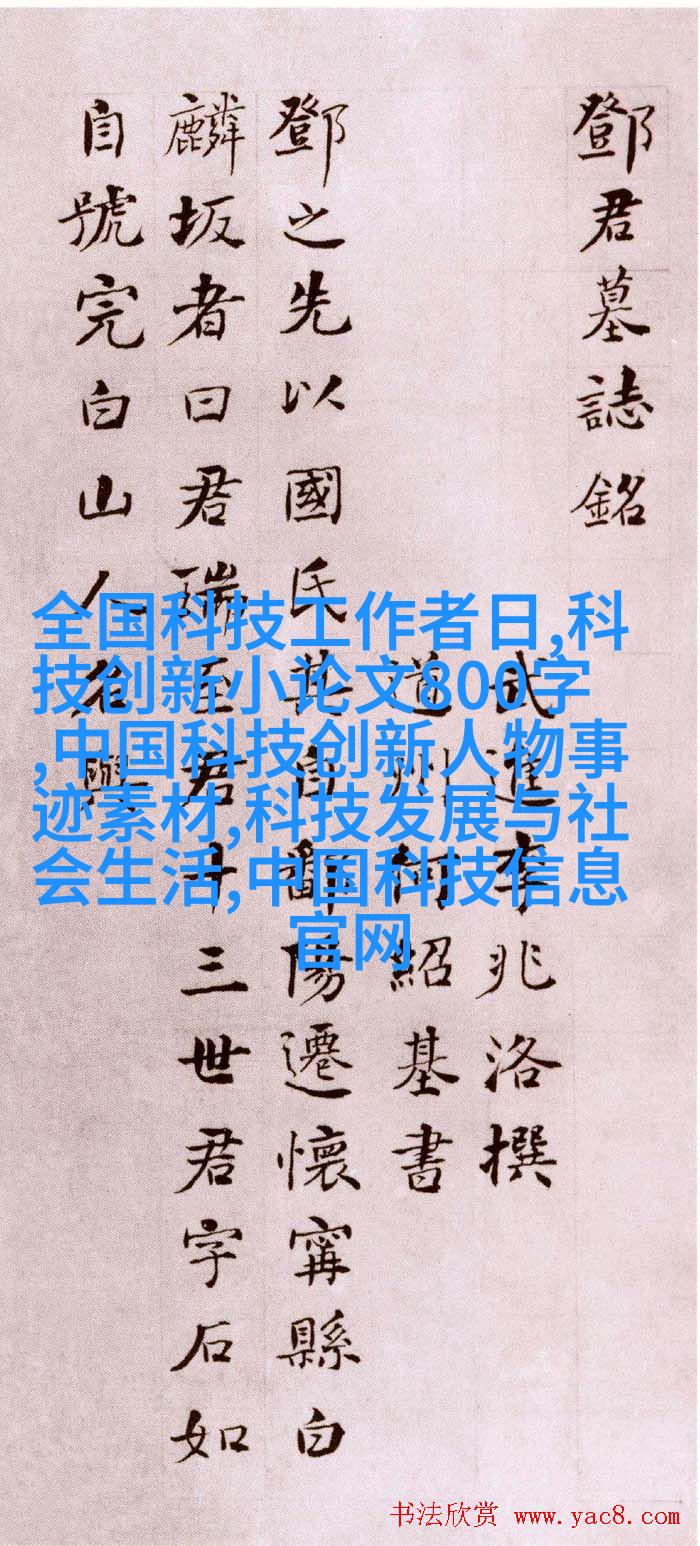 鄧君墓誌銘
武進李兆洛撰
道州何紹基書
鄧之先以國氏其自鄱陽遷懷寗縣白
麟坂者曰君瑞至君十三世君字石如
自號完白山人名
全国科技工作者日,科
技创新小论文800字
,中国科技创新人物事
迹素材,科技发展与社
会生活,中国科技信息
官网
书法欣赏 www.yac8.com